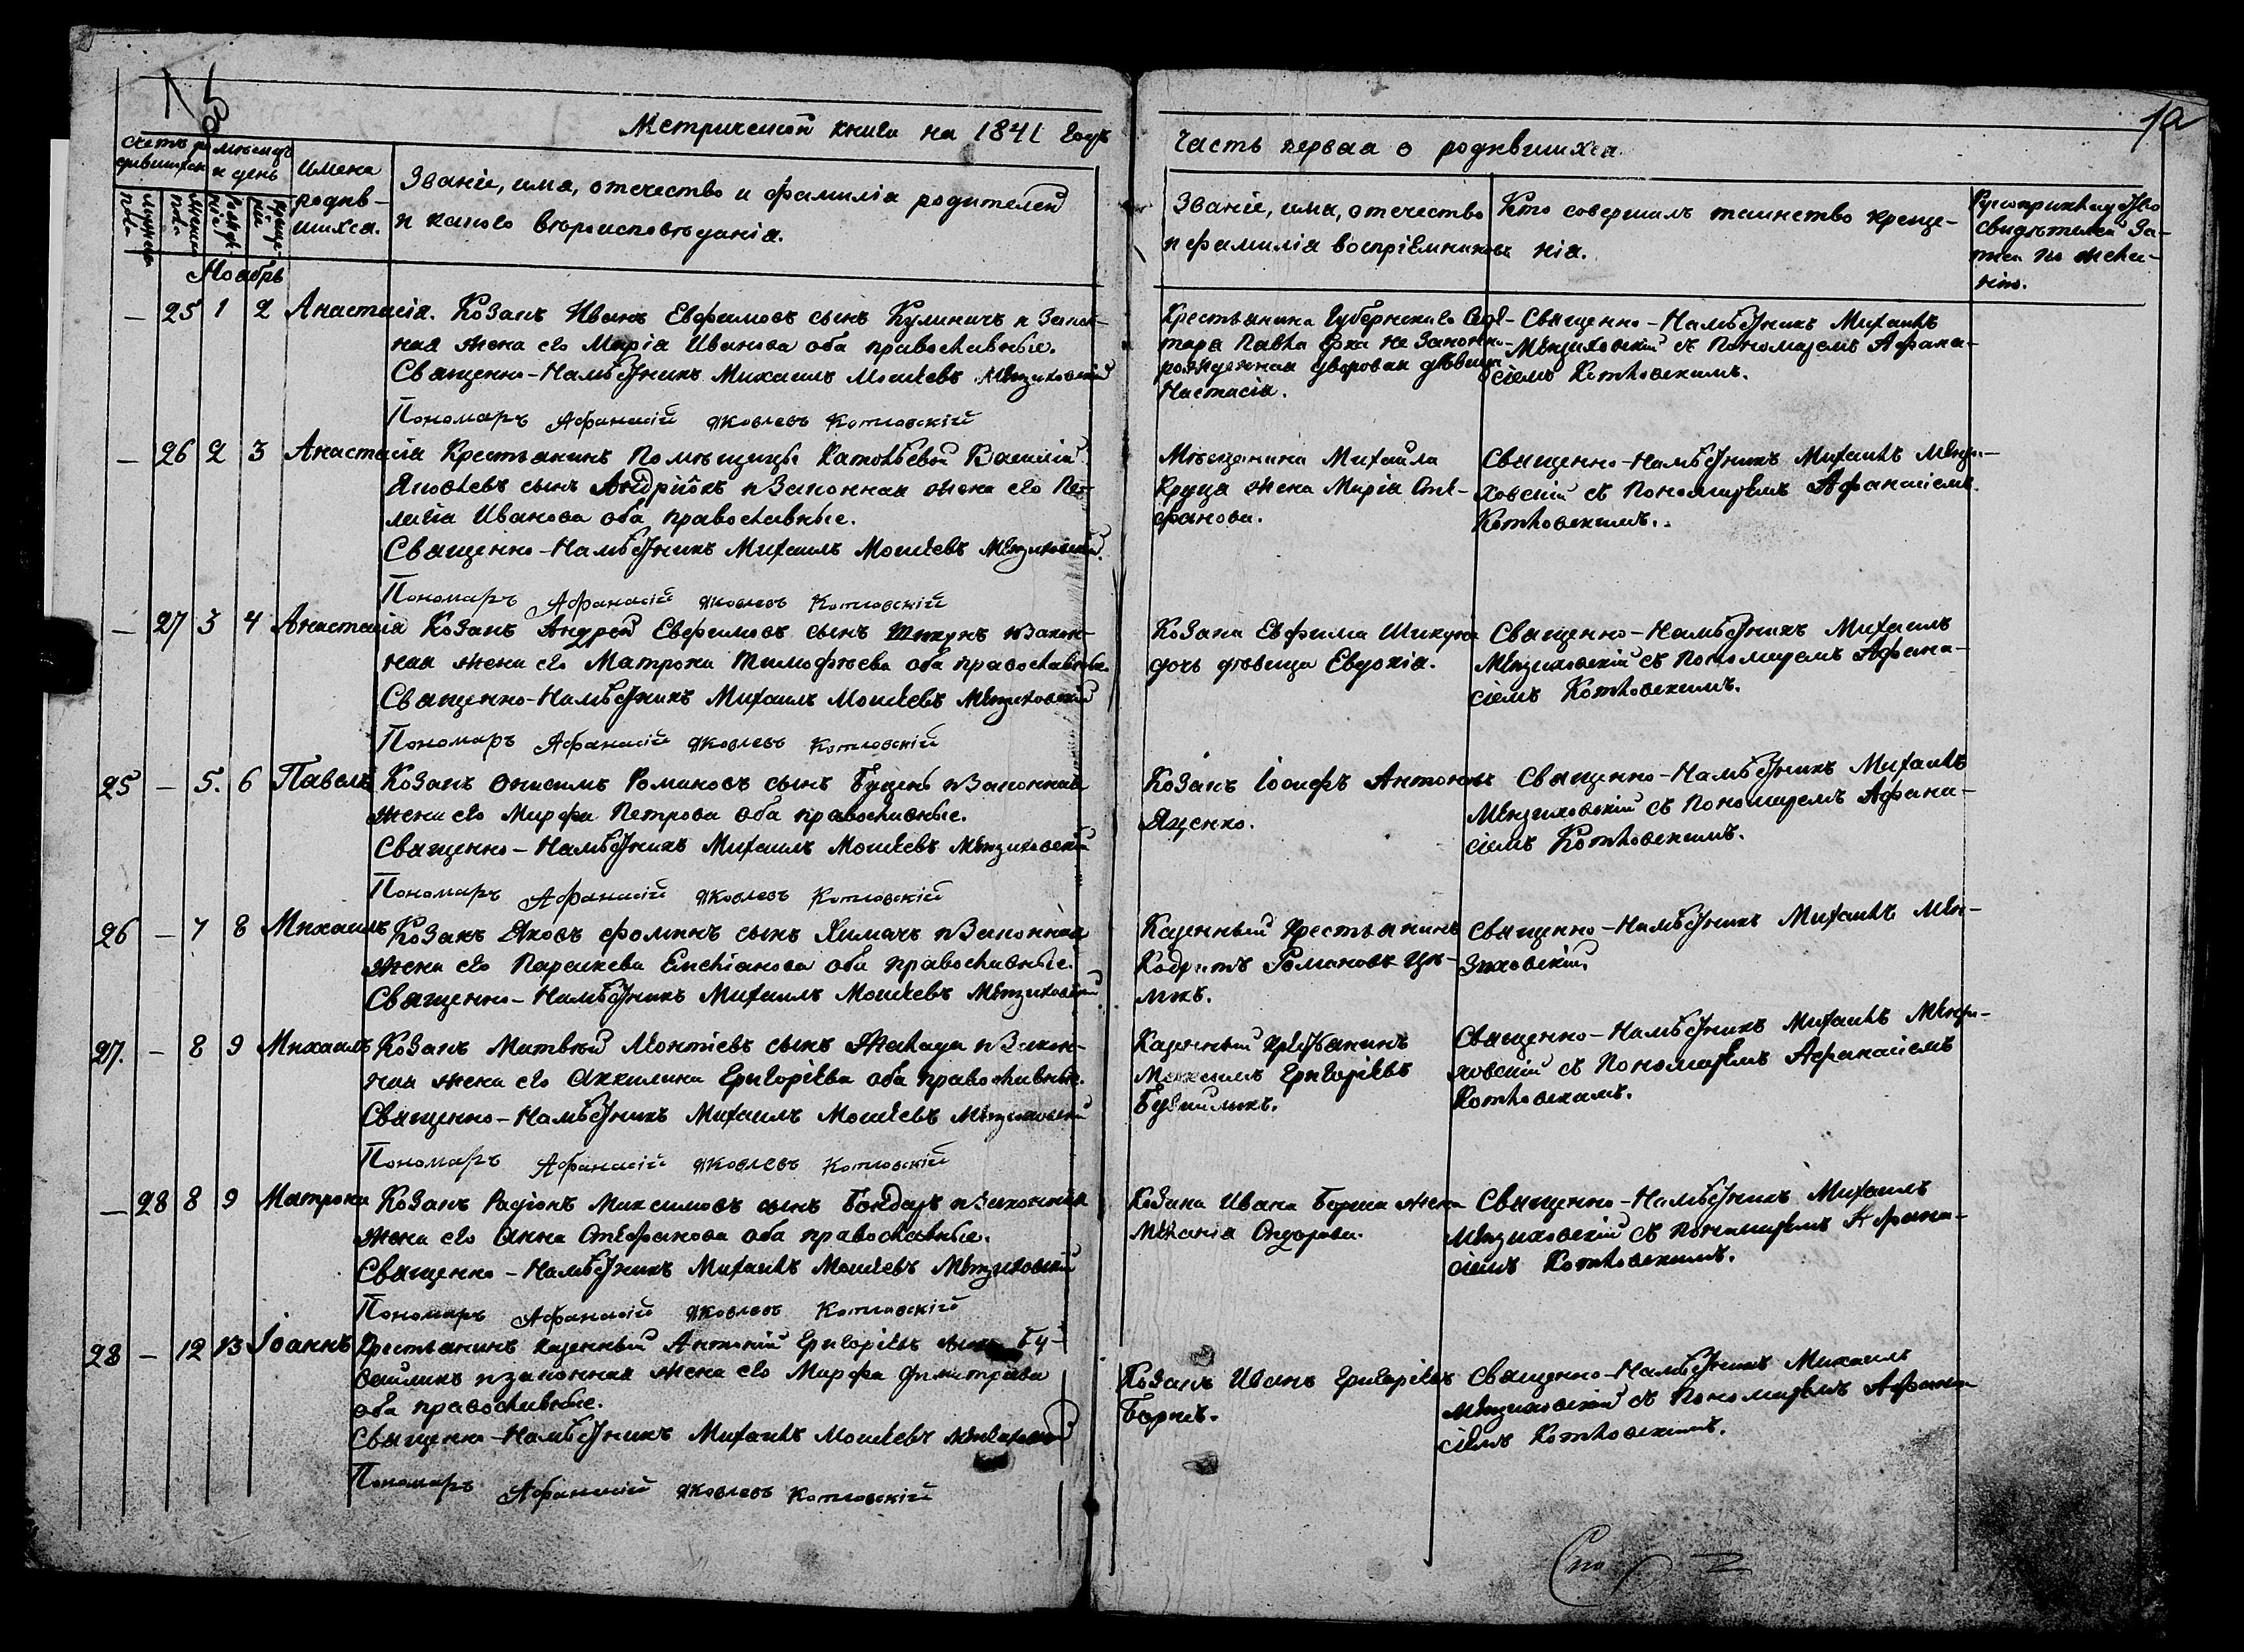 Метрической книги на 1841 годъ
Часть первая о родившихся.
10
Счетъ ро- мѣсяцъ
дившихся и день
Имена
родив-
шихся.
Званіе, имя, отечество и фамилія родителей
и какого вѣроисповѣданія.
Званіе, имя, отечество
и фамилія воспріемниковъ
Кто совершалъ таинство креще-
нія.
Рукоприкладство
свидѣтелей за-
писи по жела-
нію.
Ноябрь
— 25 1 2 Анастасія. Козакъ Иванъ Евфимовъ сынъ Кулиничъ и Закон-
ная жена его Марія Иванова оба православные.
Священно-Намѣстникъ Михаилъ Моисеевъ Мензиховскій
Пономарь Афанасій Яковлевъ Котловскій
Крестьянина Губернскаго
Павла не Законно-
рожденная дворовая дѣвица
Настасія.
Священно-Намѣстникъ Михаилъ
Мензиховскій съ Пономаремъ Афана-
сіемъ Котловскимъ.
— 26 2 3 Анастасія Крестьянинъ Помѣщицы Василій
Яковлевъ сынъ Андрійкъ и Законная жена его Пе-
лагія Иванова оба православные.
Священно-Намѣстникъ Михаилъ Моисеевъ Мензиховскій.
Пономарь Афанасій Яковлевъ Котловскій
Мѣщанина Михаила
Круца жена Марія Сте-
фанова.
Священно-Намѣстникъ Михаилъ Мензи-
ховскій съ Пономаремъ Афанасіемъ
Котловскимъ.
— 27 3 4 Анастасія Козакъ Андрей Евфимовъ сынъ Шикунъ и Закон-
ная жена его Матрона Тимофѣева оба православные.
Священно-Намѣстникъ Михаилъ Моисеевъ Мензиховскій
Пономарь Афанасій Яковлевъ Котловскій
Козака Евфима Шикуна
дочь дѣвица Евдокія.
Священно-Намѣстникъ Михаилъ
Мензиховскій съ Пономаремъ Афана-
сіемъ Котловскимъ.
25 — 5. 6 Павелъ Козакъ Онисимъ Романовъ сынъ Буцень и Законная
жена его Марфа Петрова оба православные.
Священно-Намѣстникъ Михаилъ Моисеевъ Мензиховскій
Пономарь Афанасій Яковлевъ Котловскій
Козакъ Іосифъ Антоновъ
Яценко.
Священно-Намѣстникъ Михаилъ
Мензиховскій съ Пономаремъ Афана-
сіемъ Котловскимъ.
26 — 7 8 Михаилъ Козакъ Яковъ Фоминъ сынъ Химачъ и Законная
жена его Параскева Емеліанова оба православные.
Священно-Намѣстникъ Михаилъ Моисеевъ Мензиховскій
Казенный Крестьянинъ
Кодратъ Романовъ
Священно-Намѣстникъ Михаилъ Мен-
зиховскій.
27. — 8 9 Михаилъ Козакъ Матвѣй Леонтіевъ сынъ и Закон-
ная жена его Аккилина Григоріева оба православные.
Священно-Намѣстникъ Михаилъ Моисеевъ Мензиховскій
Пономарь Афанасій Яковлевъ Котловскій
Казенный Крестьянинъ
Максимъ Григоріевъ
Священно-Намѣстникъ Михаилъ Мензи-
ховскій съ Пономаремъ Афанасіемъ
Котловскимъ.
— 28 8 9 Матрона Козакъ Радіонъ Максимовъ сынъ Бондарь и Законная
жена его Анна Стефанова оба православные.
Священно-Намѣстникъ Михаилъ Моисеевъ Мензиховскій
Пономарь Афанасій Яковлевъ Котловскій
Козака Ивана жена
Меланія
Священно-Намѣстникъ Михаилъ
Мензиховскій съ Пономаремъ Афана-
сіемъ Котловскимъ.
28 — 12 13 Іоаннъ Крестьянинъ казенный Антоній Григоріевъ сынъ
и законная жена его Марфа Димитрова
оба православные.
Священно-Намѣстникъ Михаилъ Моисеевъ Мензиховскій
Пономарь Афанасій Яковлевъ Котловскій
Козакъ Иванъ Григоріевъ
Священно-Намѣстникъ Михаилъ
Мензиховскій съ Пономаремъ Афана-
сіемъ Котловскимъ.